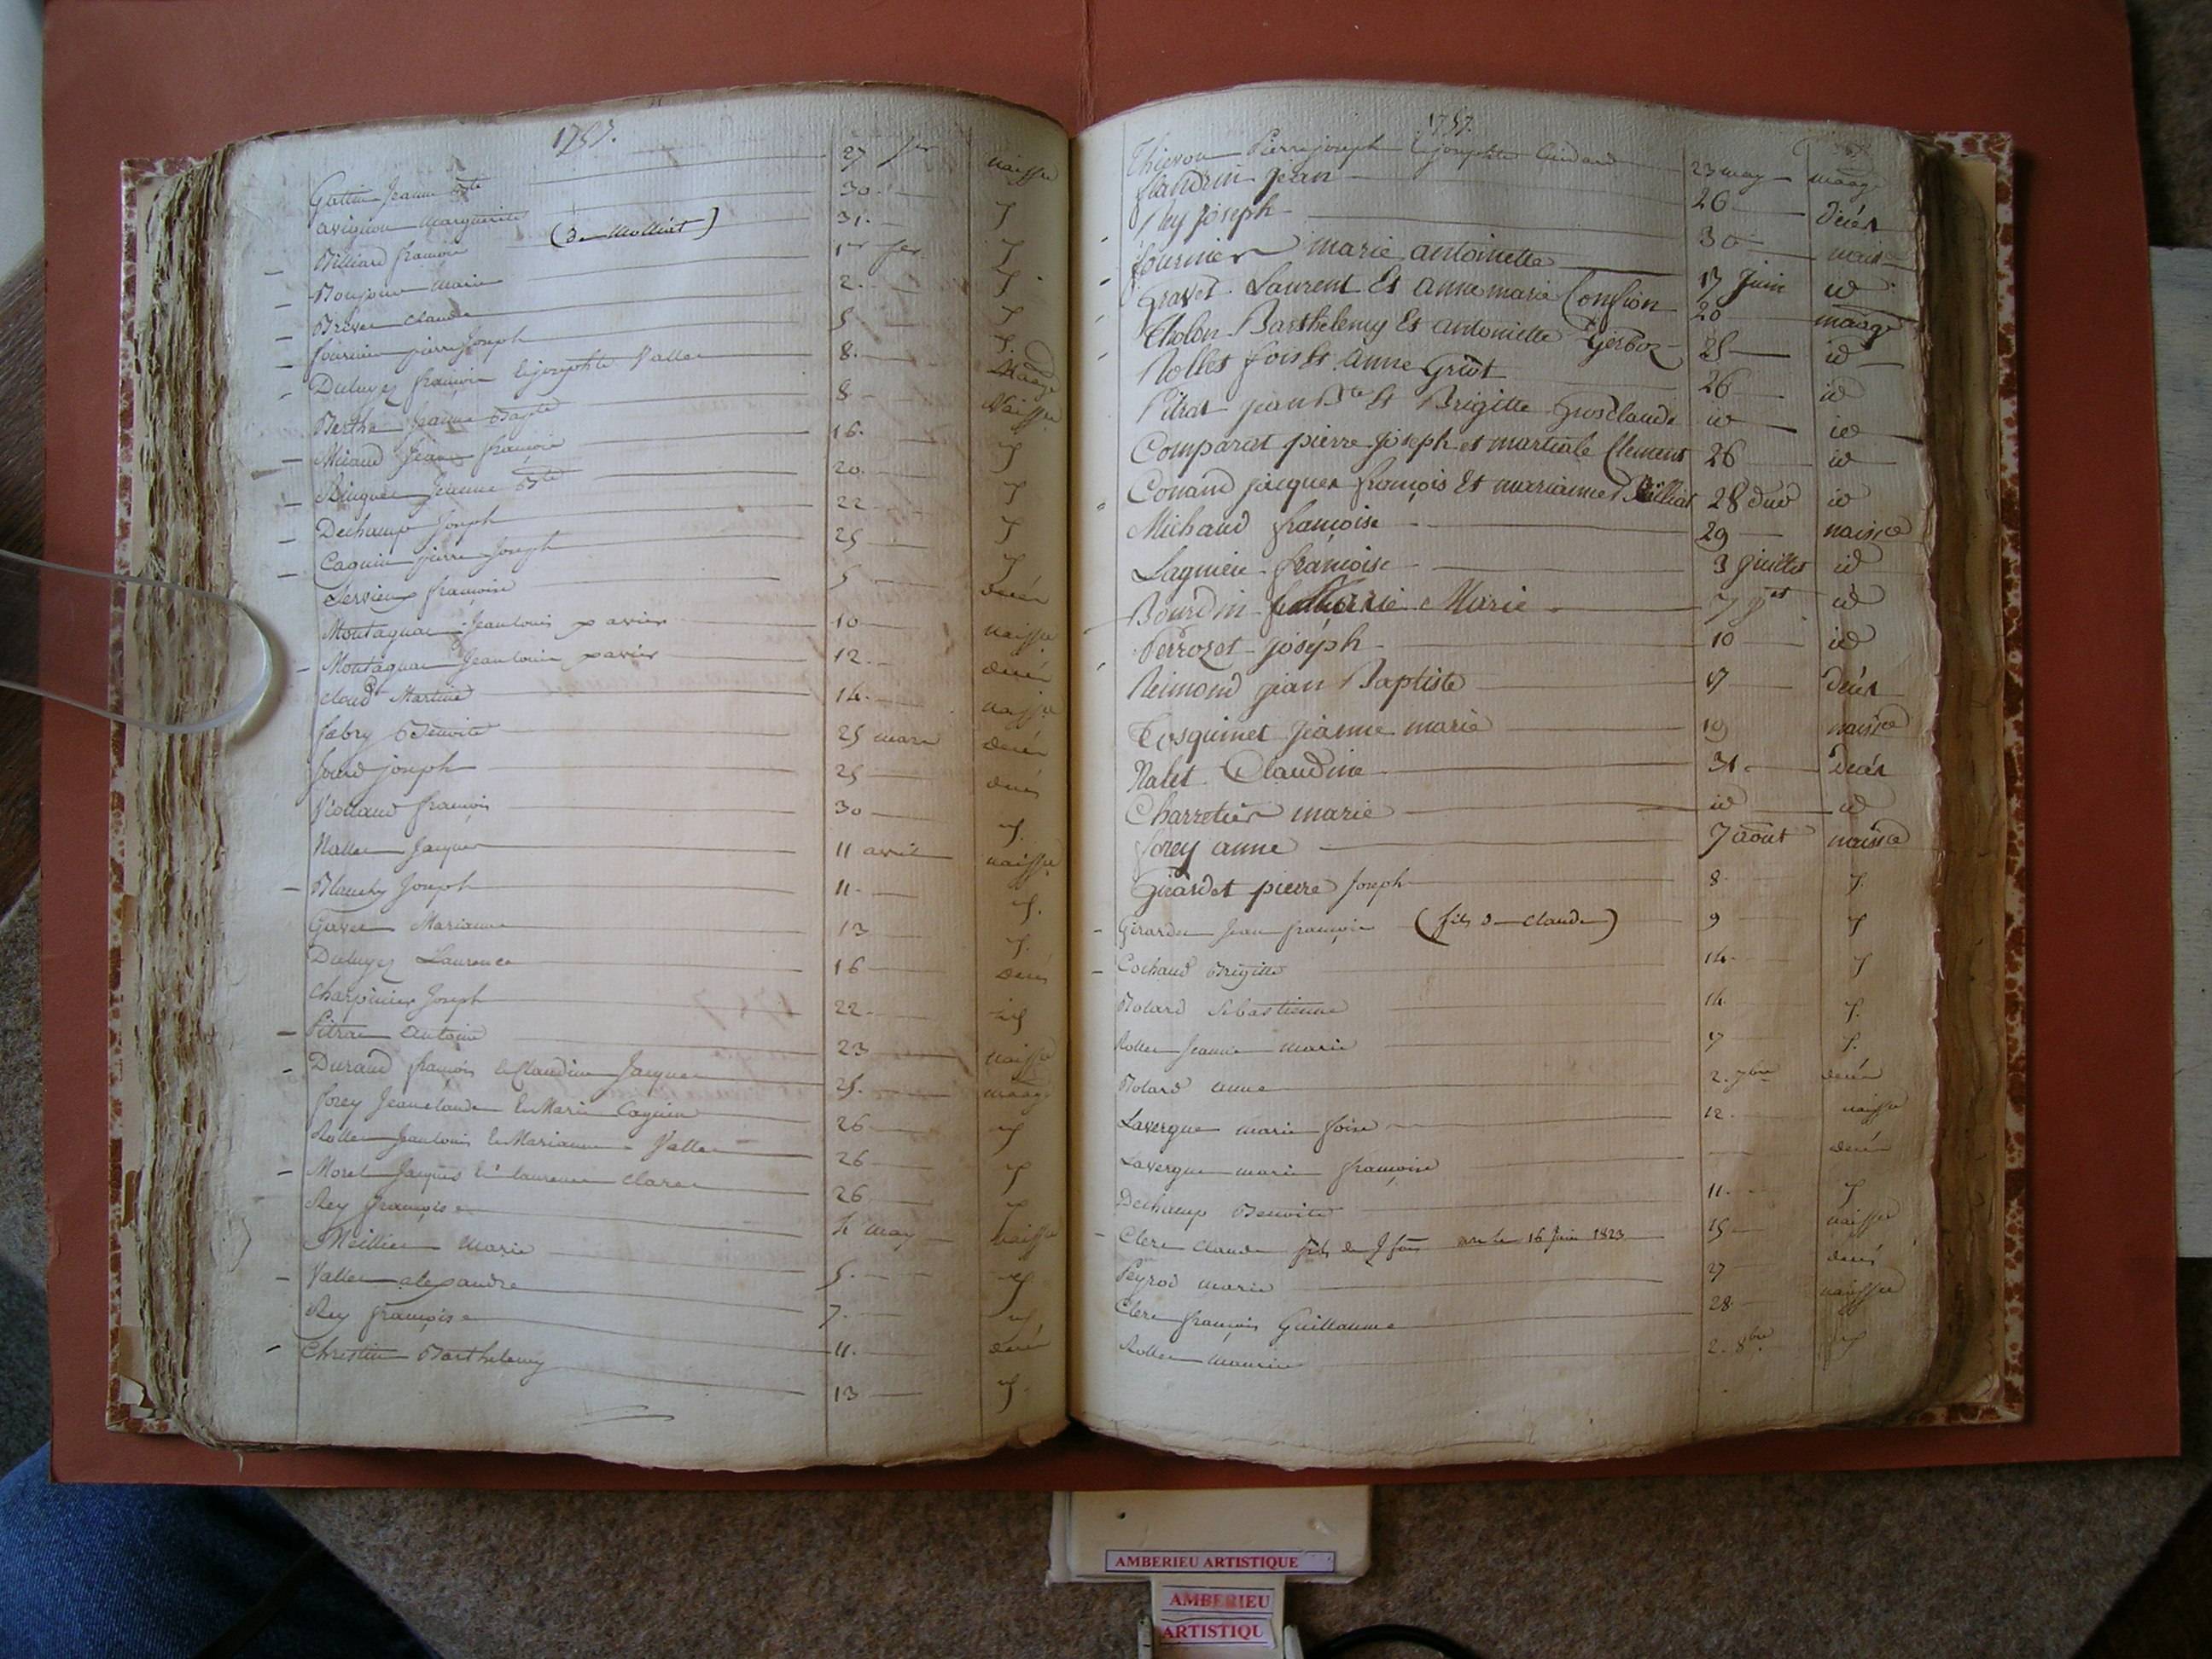 1757.
Gattin Jeanne Bte 27 jer naisse
avignon Marguerite 30.
Billiard françoise (de Molliat) 31.
Bonjour Marie 1er fer
Brevet Claude 2.
fournier pierre Joseph 5
Duluyes françois Et josephte Vallet 8. Maage
Berthe Jeanne Bapte 8 Naisse
Micaud Jeanne françoise 16.
Jeanne Bte 20.
Dechamp Joseph 22
Caquin pierre Joseph 25
Servieux françoise 5 décés
Montagnac Jean louis xavier 10 naisse
Montagnac Jean louis xavier 12. décés
Martine 14. naisse
fabry Benoite 25 mars décés
joseph 25 décés
françois 30
Jacques 11 avril naisse
Blanchy Joseph 11.
Gravet Marianne 13
Duluyes Laurence 16 décés
Charpinier Joseph 22.
Pitrat antoine 23 naisse
Durand françois et Claudine Jacquet 25. maage
forey Jean claude Et Marie Caquin 26
Rollet Jean louis Et Marianne Vallet 26
Morel Jacques Et laurence Claret 26
Rey françoise 4 may naisse
Meillier Marie 5.
Vallet alexandre 7.
Rey françoise 11. décés
Christin Barthelemy 13
1757.
Pierre joseph Et josephte 23 may maage
flandrin jean 26 décés
Rey joseph 30 naisce
fournier marie antoinette 17 juin id
Gravet Laurent Et anne marie 20 maage
Tholon Barthelemy Et antoinette Gerboz 25 id
Rollet fois Et anne Griot 26 id
Pitrat jean Bte Et Brigitte Grosclaude id id
Comparat pierre joseph et martiale Clement 26 id
Conand jacques françois Et marianne Billiat 28 dud id
Michaud françoise 29 naisce
Lagnieu françoise 3 juillet id
Bourdin Marie 7 jet id
Perrozet joséph 10 id
Reimond jean Baptiste 17 décés
Tosquinet jeanne marie 19 naisce
Nalet Claudine 31 décés
Charretier marie id id
forey anne 7 aout naisce
Girardet pierre Joseph 8
Girardet Jean françois (fils de Claude) 9
Cochaud Brigitte 14.
Bolard Sebastienne 14.
Rollet Jeanne Marie 17
Bolard anne 2. 7bre décés
Lavergne marie foise 12. naisse
Lavergne marie françoise décés
Dechamp Benoite 11.
Clerc Claude fils de J fois le 16 Juin 1823 15 naisse
Peyrod marie 27 décés
Clerc françois Guillaume 28. naisse
Rollet Maurice 2. 8bre
AMBERIEU ARTISTIQUE
AMBERIEU
ARTISTIQU